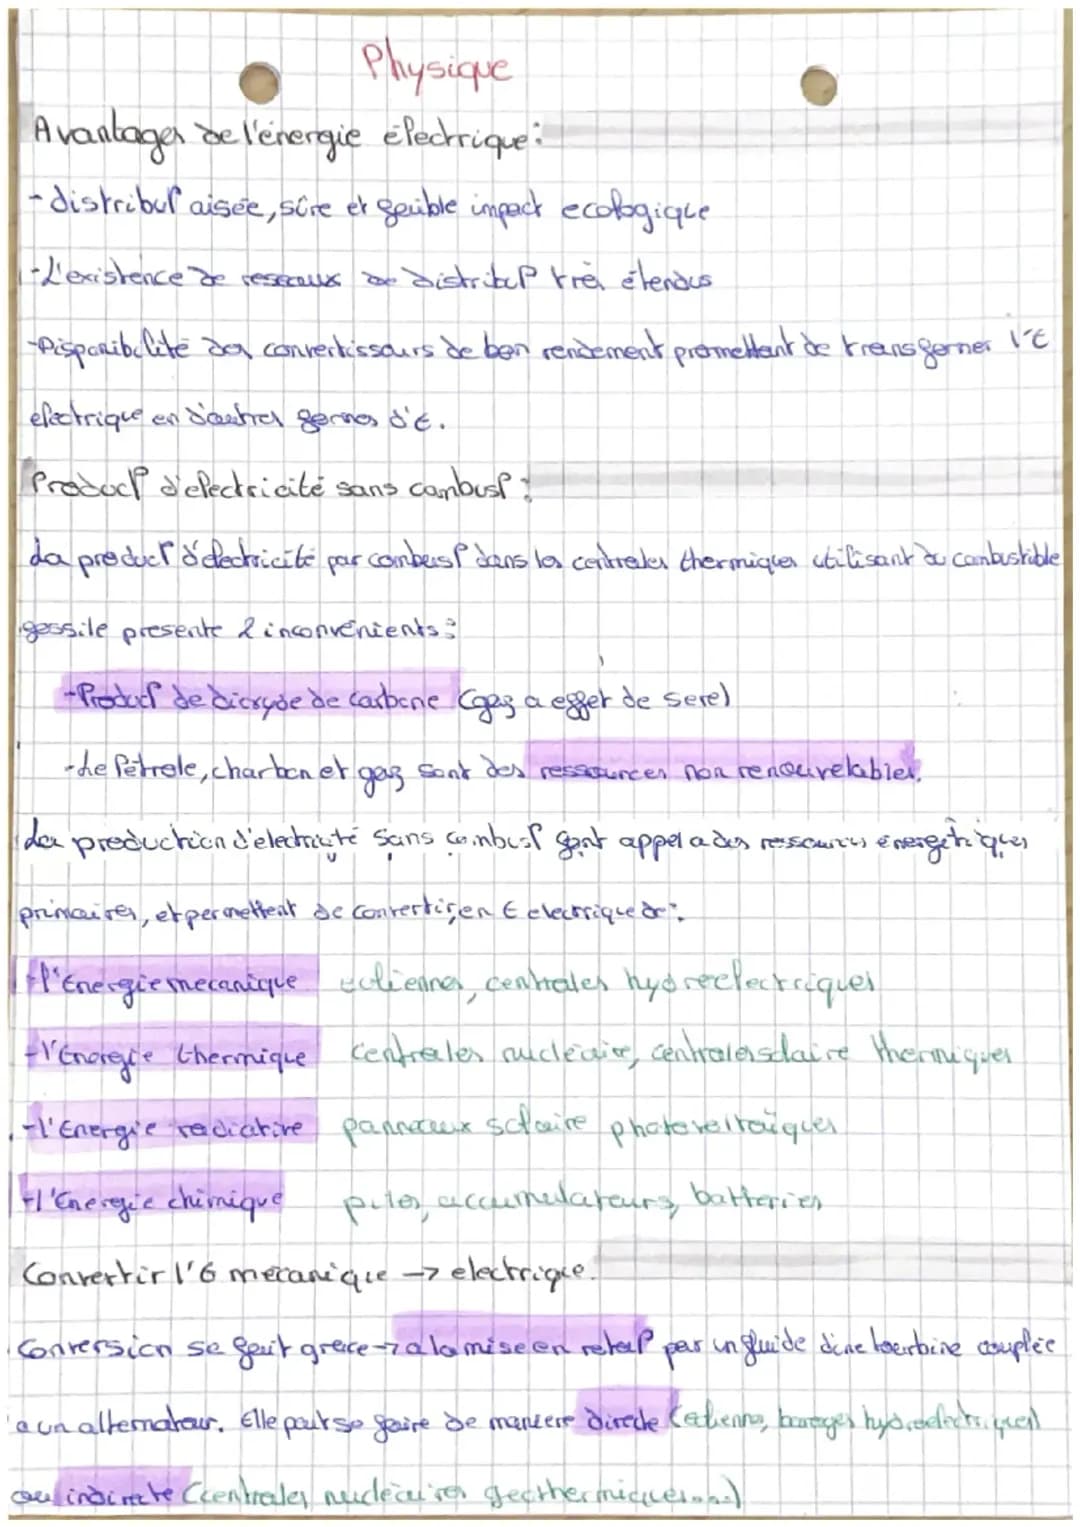 Physique
Avantages de l'énergie électrique :
- distribuº aisée, sûre et faible impact ecologique
- L'existence de reseaux de distribuº très étendus
- Disponibilité des convertisseurs de bon rendement promettant de transformer l'E
electrique en d'autres formes d'E.
Producº d'electricité sans combusº :
La producº d'électricité par combusº dans les centrales thermiques utilisant du combustible
fossile presente 2 inconvénients :
- Producº de dioxyde de carbone (gaz a effet de serre)
- Le Pétrole, charbon et gaz sont des ressources non renouvelables.
Les production d'electricité sans combusº font appel a des ressources énergétiques
primaires, et permettent de convertir en E electrique de :
- l'Énergie mecanique eoliennes, centrales hydroelectriques
- l'Énergie thermique centrales nucléaire, centrales solaire thermiques
- l'Énergie radiative panneaux solaire photovoltaïques
- l'Énergie chimique piles, accumulateurs, batteries
Convertir l'E mecanique → electrique.
Conversion se fait grace → a la mise en rotaº par un fluide d'une tourbine couplée
a un alternateur. Elle peut se faire de maniere directe (eolienne, barages hydroelectriques)
ou indirecte (centrales nucléaires geothermiques...)